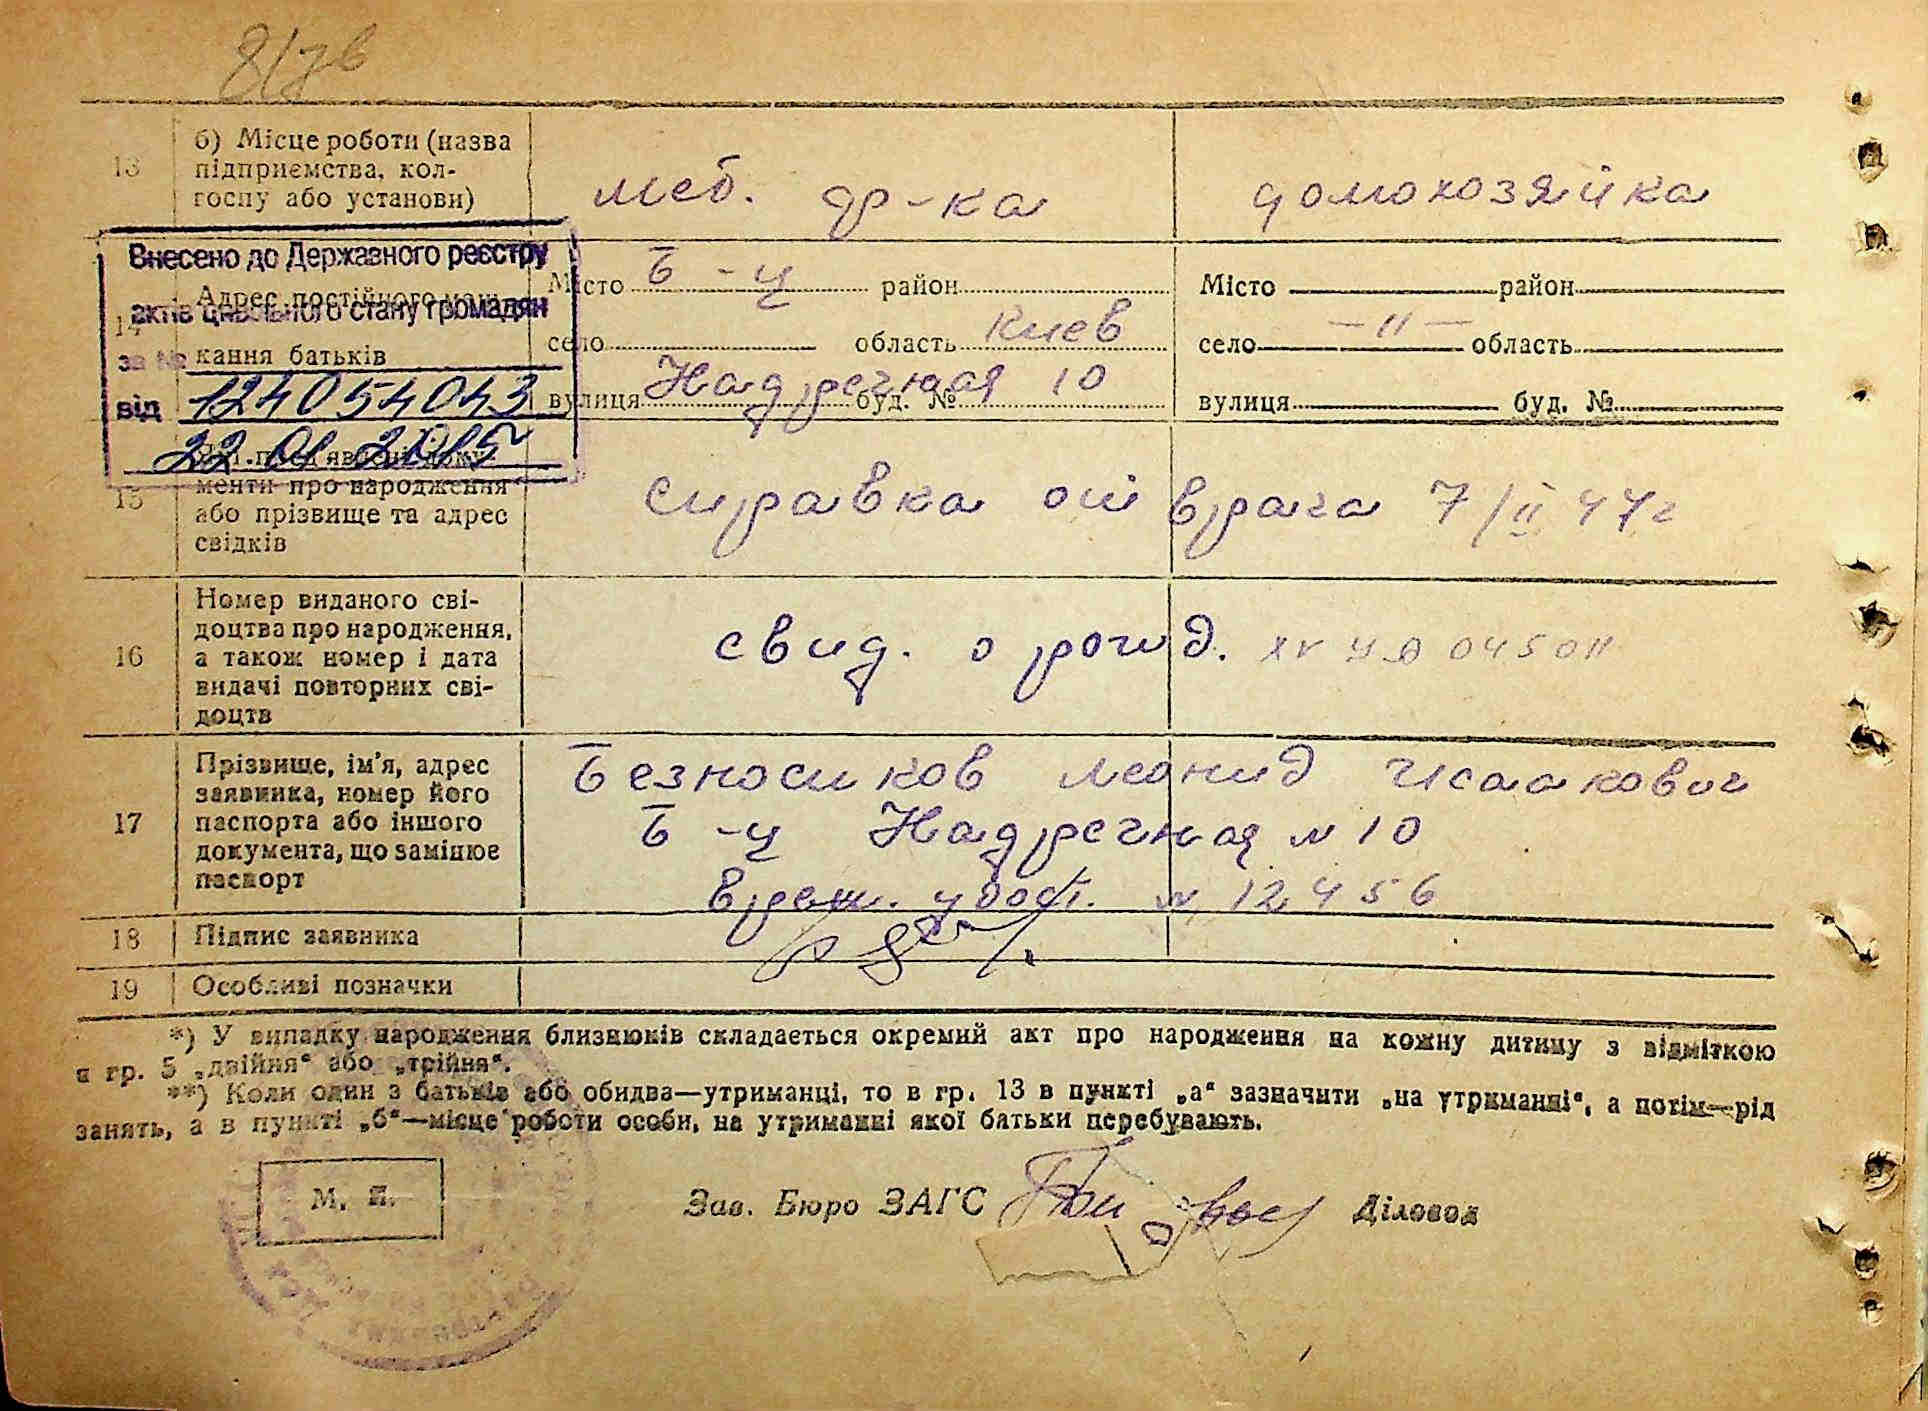 8/7в
13 б) Місце роботи (назва
підприємства, кол-
госпу або установи)
меб. ф-ка домохозяйка
Внесено до Державного реєстру
актів цивільного стану громадян
за №
від 124054043
22 01 2015
14
Адрес постійного
кання батьків
Місто Б-ц район
село область Киев
вулиця Надречная буд. № 10
Місто район
село -"- область
вулиця буд. №
15
менти про народження
або прізвище та адрес
свідків
справка от врача 7/II 47г
16 Номер виданого сві-
доцтва про народження,
а також номер і дата
видачі повторних сві-
доцтв
свид. о рожд. 045011
17 Прізвище, ім'я, адрес
заявника, номер його
паспорта або іншого
документа, що замінює
паспорт
Безносиков Леонид Исаакович
Б-ц Надречная № 10
врем. удост. № 12456
18 Підпис заявника
19 Особливі позначки
*) У випадку народження близнюків складається окремий акт про народження на кожну дитину з відміткою
в гр. 5 „двійня“ або „трійня“.
**) Коли один з батьків або обидва—утриманці, то в гр. 13 в пункті „а“ зазначити „на утриманні“, а потім—рід
занять, а в пункті „б“—місце роботи особи, на утриманні якої батьки перебувають.
М. П.
Зав. Бюро ЗАГС Діловод